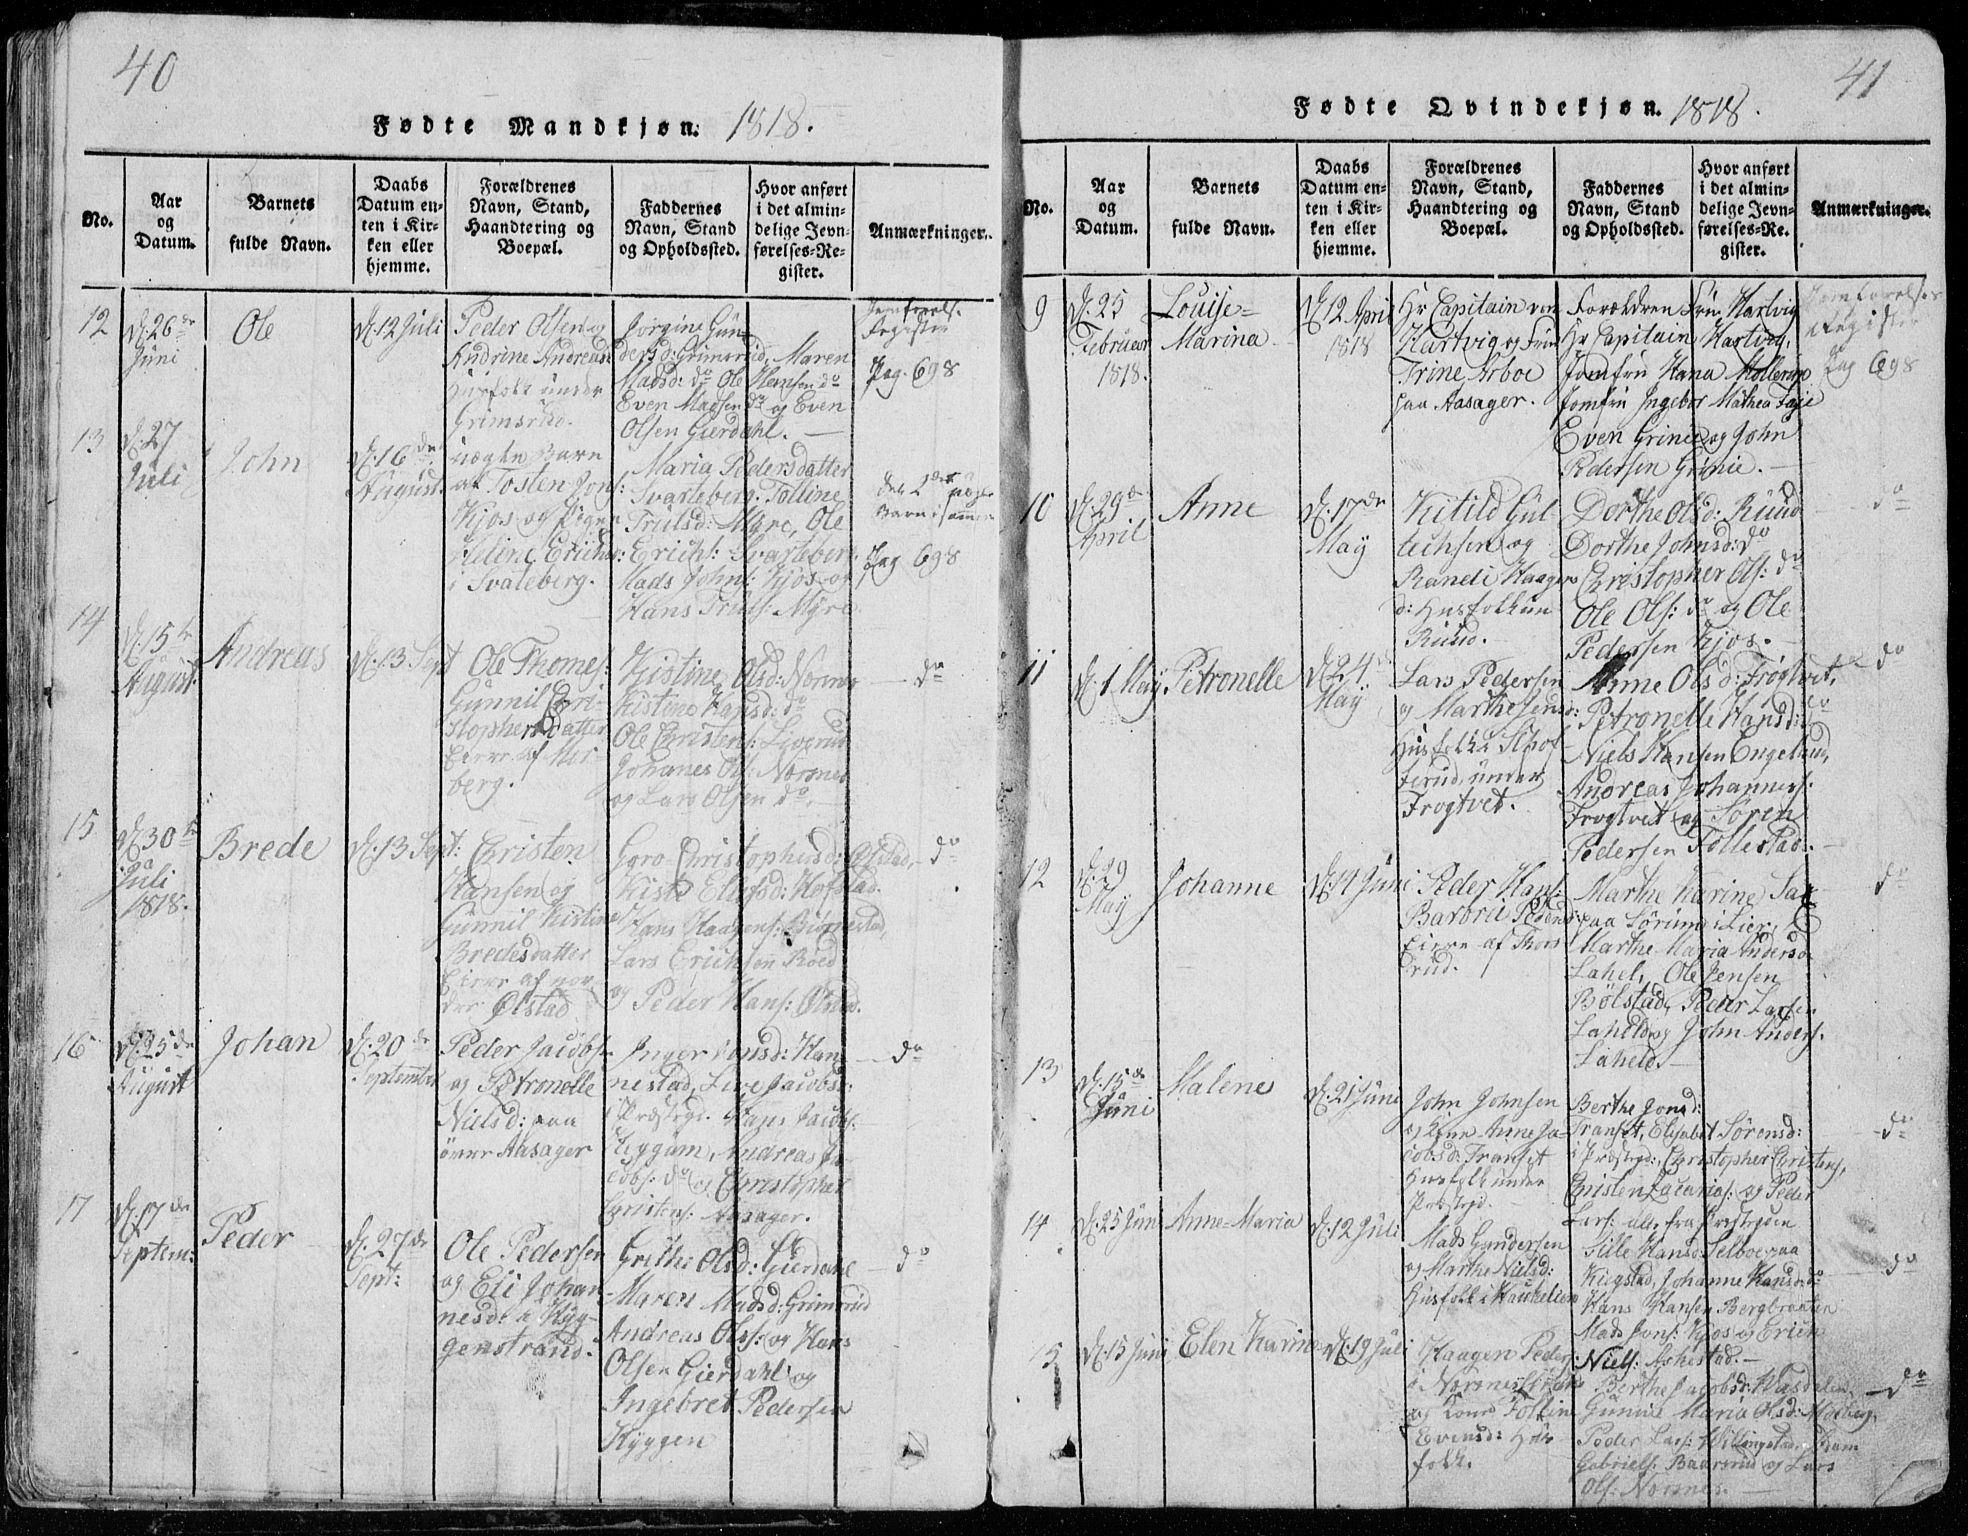 40
Fødte Mandkjøn. 1818.
No.
Aar
og
Datum.
Barnets
fulde Navn.
Daabs
Datum en-
ten i Kir-
ken eller
hjemme.
Forældrenes
Navn, Stand,
Haandtering og
Boepæl.
Faddernes
Navn, Stand
og Opholdssted.
Hvor anført
i det almin-
delige Jevn-
førelses-Re-
gister.
Anmærkninger.
12
D. 26de
Juni
Ole
D. 12 Juli
Peder Olsen og
Andrine Andreas
Husfolk under
Grimsrud.
Jørgine Gun-
dersd: Grimsrud, Maren
Madsd: do Ole Hansen do
Even Madsen do og Even
Olsen Gierdahl.
Register
Pag. 698
13
D. 27
Juli
John
D. 16de
August
uægte Barn
af Tosten Jons:
Kjos og Pigen
Helene Erichsd:
i Svateberg.
Maria Pedersdatter
Svarteberg, Tolline
Trulsd: Myre, Ole
Erichs: Svarteberg
Mads Johns: Kjos og
Hans Truls: Myre
Pag 698
14
D. 15de
August
Andreas
D. 13 Sept
Ole Thomes:
Gunnil Chri-
stophersdatter
Eiere af Mor-
berg.
Kistine Olsd: Nornes
Kistene Hansd: do
Ole Christens:
Johanes Ols: Nornes
og Lars Olsen do
do
15
D. 30te
Juli
1818.
Brede
D. 13 Sept:
Christen
Hansen og
Gunnil Kistine
Bredesdatter
Eiere af nor-
dre Ølstad
Goro Christophersd: Ølstad,
Kisti Elefsd: Hofstad
Hans Haagens: Biørnestad,
Lars Erichsen Roed
og Peder Hans: Ølstad.
do
16
D. 25de
August
Johan
D. 20de
September
Peder Jacobs:
og Petronelle
Nielsd: paa
øvre Aasager
Inger Jonsd: Han-
nestad, Live Jacobsd:
i Præstegr. Hans Jacobs:
Hyggum, Andreas Ja-
cobs: do og Christopher
Christens: Aasager.
do
17
D. 17de
Septem:
Peder
D. 27de
Sept:
Ole Pedersen
og Eli Johan-
nesd: i Hyg-
genstrand.
Grethe Olsd: Gierdahl
Maren Madsd: Grimsrud
Andreas Ols: og Hans
Olsen Gierdahl og
Ingebret Pedersen
Hyggen
do
41
Fødte Qvindekjøn. 1818.
No.
Aar
og
Datum.
Barnets
fulde Navn.
Daabs
Datum en-
ten i Kir-
ken eller
hjemme.
Forældrenes
Navn, Stand,
Haandtering og
Boepæl.
Faddernes
Navn, Stand
og Opholdssted.
Hvor anført
i det almin-
delige Jevn-
førelses-Re-
gister.
Anmærkninger.
9
D. 25
Februar
1818.
Louise-
Marina
D. 12 April
1818
Hr Capitain von
Hartvig og Frue
Trine Arboe
paa Aasager.
Forældren Frue Hartvig
Hr Capitain Hartvig,
Jomfru Hana Møllerup
Jomfru Ingebor Mathea Faye
Even Grinie og John
Pedersen Grinie.
Jevnførelses
Register
Pag 698
10
D. 29de
April
Anne
D. 17de
May
Kitild Gul-
lechsen og
Randi Haagens
d: Husfolk un
Ruud.
Dorthe Olsd: Ruud
Dorthe Johnsd: do
Christopher Ols: do
Ole Ols: do og Ole
Pedersen Kjos.
do
11
D. 1 May
Petronelle
D. 24de
May
Lars Pedersen
og Marthe Jensd:
Husfolk i Slhof-
ferud under
Frogtvet.
Anne Olsd: Frogtvet,
Petronelle Hansd: do
Niels Hansen Engelund,
Andreas Johannes:
Frogtvet og Søren
Pedersen Follestad.
do
12
D. 29
May
Johanne
D. 14 Juni
Peder Hans:
Barbroe Pedersd:
Eiere af Thors-
rud.
Marthe Karine
paa Sørum i Lier,
Marthe Maria Andersd
Lahel, Ole Jensen
Bölstad, Peder Larsen
Laheld og John Anders:
Laheld.
do
13
D. 15de
Juni
Malene
D. 21 Juni
John Johnsen
og Kone Anne Ja-
cobsd: Transet
Husfolk under
Præstegrd.
Berthe Jonsd:
Transet, Elisabet Sørensd:
i Præstegrd:, Christopher Christens,
Christen Zacarias: og Peder
Lars: alle fra Præstegrden
do
14
D. 25 Juni
Anne-Maria
D. 12 Juli
Mads Gundersen
og Marthe Nielsd:
Husfolk i Haukelien
Sille Hansd: Selboe paa
Kiegstad, Johanne Hansd: do
Hans Hansen Bergbraaten
Mads Jons: Kjos og Erich
Niels: Askestad.
do
15
D. 15 Juni
Elen Karine
D. 19 Juli
Haagen Peders:
i Nornesstrand
og Kone Tolline
Evensd: Hus-
folk.
Berthe Jacobsd: Wasdalen,
Gunnil Maria Olsd: Moeberg,
Peder Lars: Willingstad, Adam
Gabriels: Baarsrud og Lars
Ols: Nornes.
do